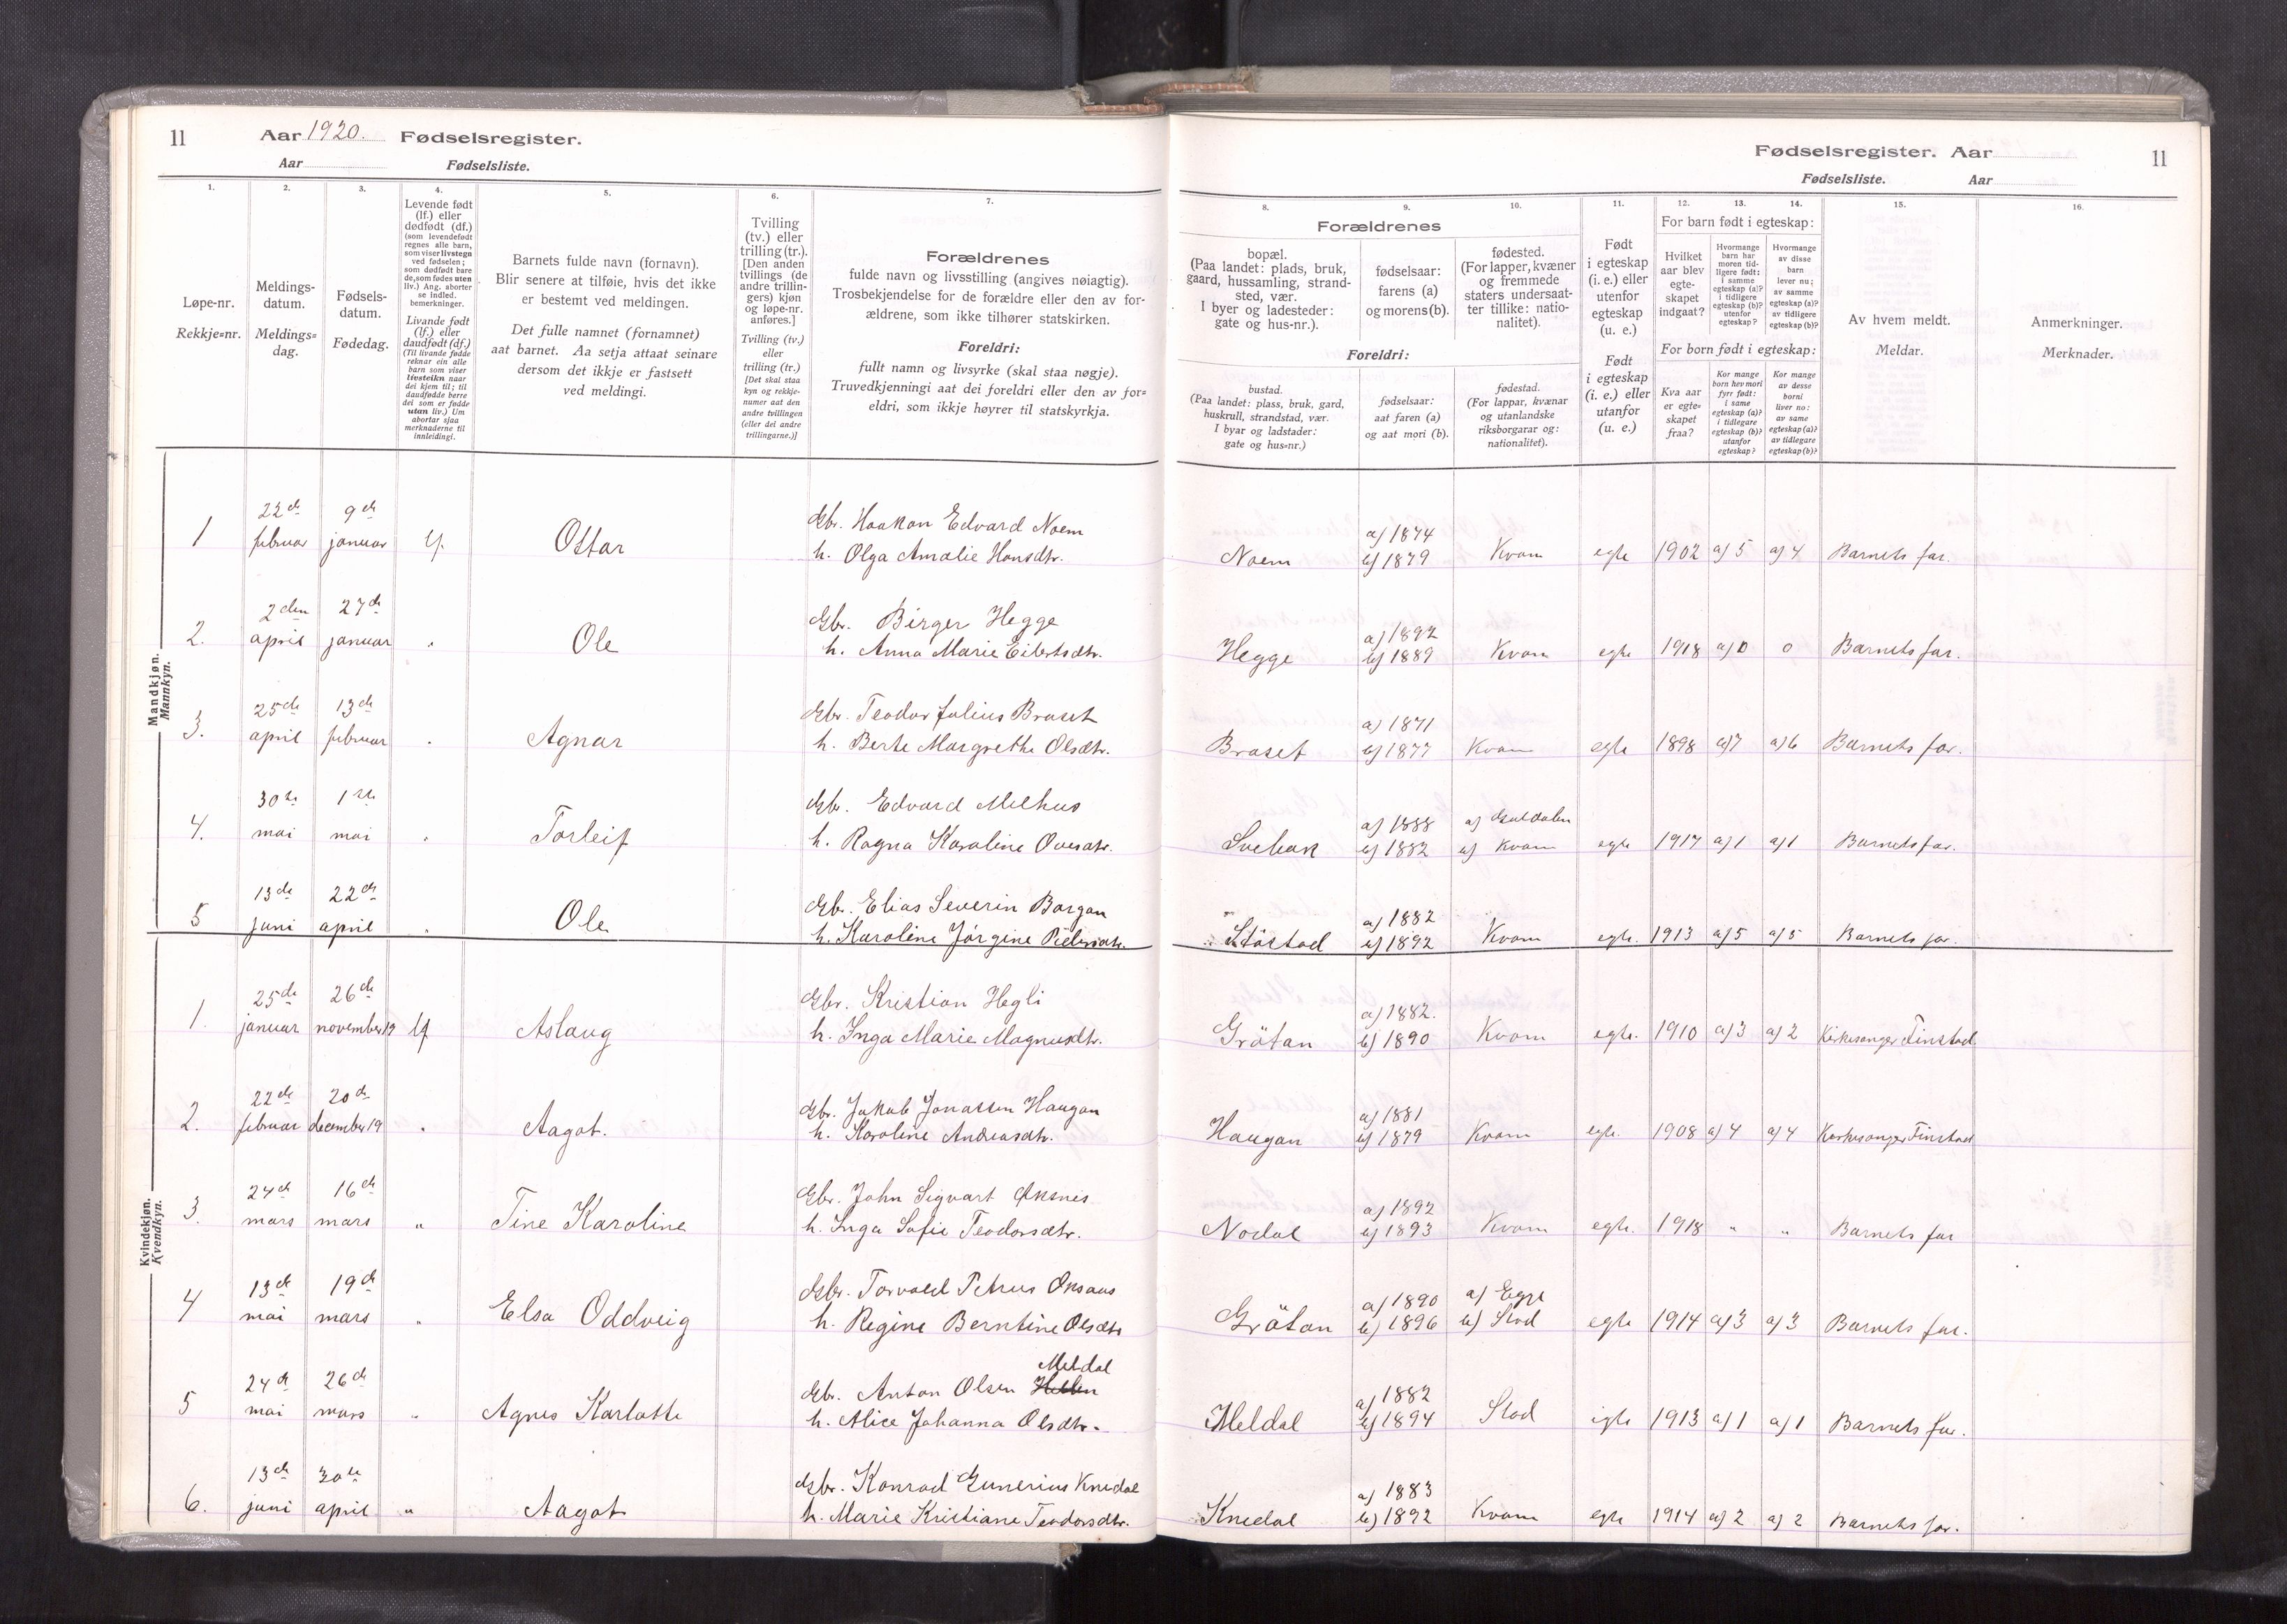 11 Aar 1920. Fødselsregister.
Aar Fødselsliste.
Fødselsregister. Aar 11
Fødselsliste. Aar
1.
Løpe-nr.
Rekkje=nr.
2.
Meldings-
datum.
Meldings=
dag.
3.
Fødsels-
datum.
Fødedag.
4.
Levende født
(lf.) eller
dødfødt (df.)
(som levendefødt
regnes alle barn,
som viser livstegn
ved fødselen;
som dødfødt bare
de, som fødes uten
liv.) Ang. aborter
se indled.
bemerkninger.
Livande født
(lf.) eller
daudfødt (df.)
(Til livande fødde
reknar ein alle
barn som viser
livsteikn naar
dei kjem til; til
daudfødde berre
dei som er fødde
utan liv.) Um
abortar sjaa
merknaderne til
innleidingi.
5.
Barnets fulde navn (fornavn).
Blir senere at tilføie, hvis det ikke
er bestemt ved meldingen.
Det fulle namnet (fornamnet)
aat barnet. Aa setja attaat seinare
dersom det ikkje er fastsett
ved meldingi.
6.
Tvilling
(tv.) eller
trilling (tr.).
[Den anden
tvillings (de
andre trillin-
gers) kjøn
og løpe-nr.
anføres.]
Tvilling (tv.)
eller
trilling (tr.)
[Det skal staa
kyn og rekkje-
numer aat den
andre tvillingen
(eller dei andre
trillingarne.)]
7.
Forældrenes
fulde navn og livsstilling (angives nøiagtig).
Trosbekjendelse for de forældre eller den av for-
ældrene, som ikke tilhører statskirken.
Foreldri:
fullt namn og livsyrke (skal staa nøgje).
Truvedkjenningi aat dei foreldri eller den av for=
eldri, som ikkje høyrer til statskyrkja.
Forældrenes
8.
bopæl.
(Paa landet: plads, bruk,
gaard, hussamling, strand-
sted, vær.
I byer og ladesteder:
gate og hus-nr.).
9.
fødselsaar:
farens (a)
og morens (b).
10.
fødested.
(For lapper, kvæner
og fremmede
staters undersaat-
ter tillike: natio-
nalitet).
Foreldri:
bustad.
(Paa landet: plass, bruk, gard,
huskrull, strandstad, vær.
I byar og ladstader:
gate og hus=nr.)
fødselsaar:
aat faren (a)
og aat mori (b).
fødestad.
(For lappar, kvænar
og utanlandske
riksborgarar og:
nationalitet).
11.
Født
i egteskap
(i. e.) eller
utenfor
egteskap
(u. e.)
Født
i egteskap
(i. e.) eller
utanfor
egteskap
(u. e.)
For barn født i egteskap:
12.
Hvilket
aar blev
egte-
skapet
indgaat?
13.
Hvormange
barn har
moren tid-
ligere født:
i samme
egteskap (a)?
i tidligere
egteskap (b)?
utenfor
egteskap?
14.
Hvormange
av disse
barn
lever nu;
av samme
egteskap (a)?
av tidligere
egteskap (b)?
For born født i egteskap:
Kva aar
er egte=
skapet
fraa?
Kor mange
born hev mori
fyrr født:
i same
egteskap (a)?
i tidlegare
egteskap (b)?
utanfor
egteskap?
Kor mange
av desse
borni
liver no:
av same
egteskap (a)?
av tidlegare
egteskap (b)?
15.
Av hvem meldt.
Meldar.
16.
Anmerkninger.
Merknader.
Mandkjøn.
Mannkyn.
22de 9de Gbr. Haakon Edvard Noem a) 1874
1 februar januar lf. Ottar h. Olga Amalie Hansdtr. Noem b) 1879 Kvam egte 1902 a) 5 a) 4 Barnets far.
2den 27de Gbr. Birger Hegge a) 1892
2. april januar " Ole h. Anna Marie Eilertsdtr. Hegge b) 1889 Kvam egte 1918 a) 0 0 Barnets far.
25de 13de Gbr. Teodor Julius Braset a) 1871
3. april februar " Agnar h. Berte Margrethe Olsdtr. Braset b) 1877 Kvam egte 1898 a) 7 a) 6 Barnets far.
30te 1ste Gbr. Edvard Melhus a) 1888 a)
4. mai mai " Torleif h. Ragna Karoline b) 1882 b) Kvam egte 1917 a) 1 a) 1 Barnets far.
13de 22de Gbr. Elias Severin Bargan a) 1882
5 juni april " Ole h. Karoline Jörgine Pedersdtr. b) 1892 Kvam egte. 1913 a) 5 a) 5 Barnets far.
Kvindekjøn.
Kvendkyn.
25de 26de Gbr. Kristian Hegli a) 1882.
1. januar november 19 lf Aslaug h. Inga Marie Magnusdtr. Grötan b) 1890 Kvam egte. 1910 a) 3 a) 2 Kirkesanger Finstad
22de 20de Gbr. Jakob Jonassen Haugan a) 1881
2. februar december 19 " Aagot. h. Karoline Andreasdtr. Haugan b) 1879 Kvam egte. 1908 a) 4 a) 4 Kirkesanger Finstad
24de 16de Gbr. John Sigvart Öksnes a) 1892
3. mars mars " Tine Karoline h. Inga Sofie Teodorsdtr. Nodal b) 1893 Kvam egte. 1918 " " Barnets far
13de 19de Gbr. Torvald Petrus a) 1890 a) Egge
4 mai mars " Elsa Oddveig h. Regine Berntine Olsdtr Grötan b) 1896 b) Stod egte 1914 a) 3 a) 3 Barnets far.
Meldal
24de 26de Gbr. Anton Olsen a) 1882
5 mai mars " Agnes Karlotte h. Alice Johanna Olsdtr. Meldal b) 1894 Stod egte 1913 a) 1 a) 1 Barnets far.
13de 30te Gbr. Konrad Gunerius Knedal a) 1883
6. juni april " Aagot h. Marie Kristiane Teodorsdtr. Knedal b) 1892 Kvam egte 1914 a) 2 a) 2 Barnets far.